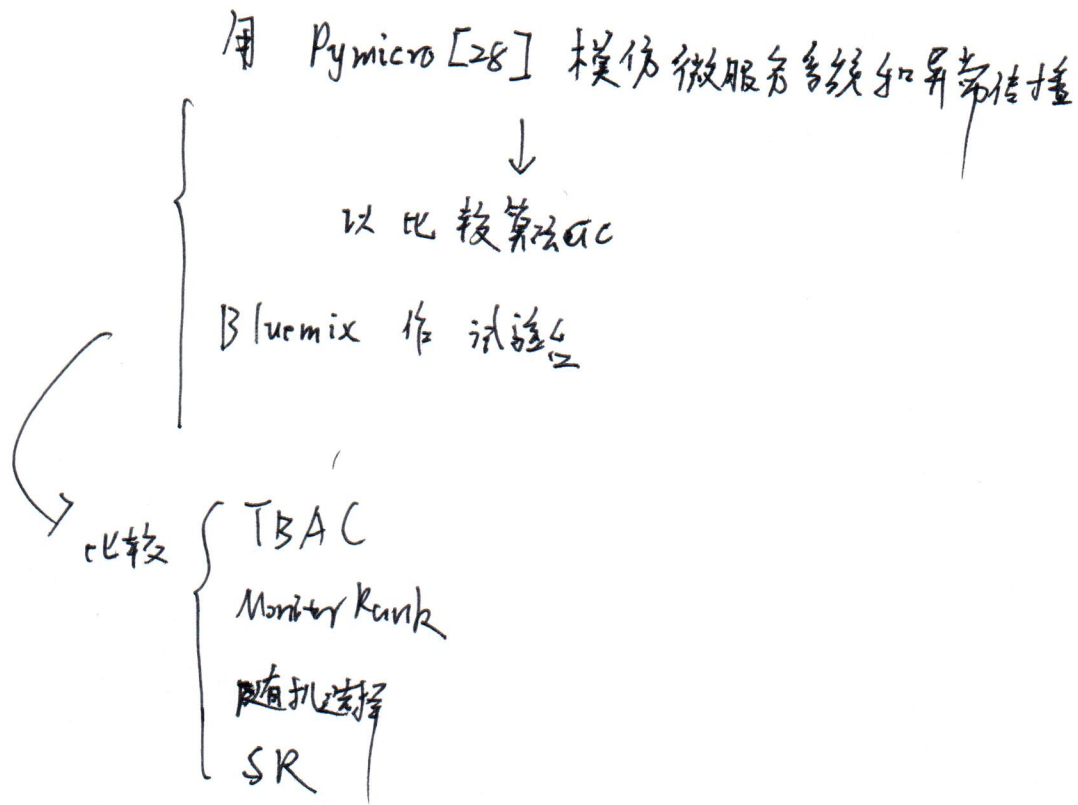 用 Pymicro [28] 模仿微服务系统和异常传播
以比较算法
Bluemix 作 试验台
比较
TBAC
MonitorRank
随机选择
SR